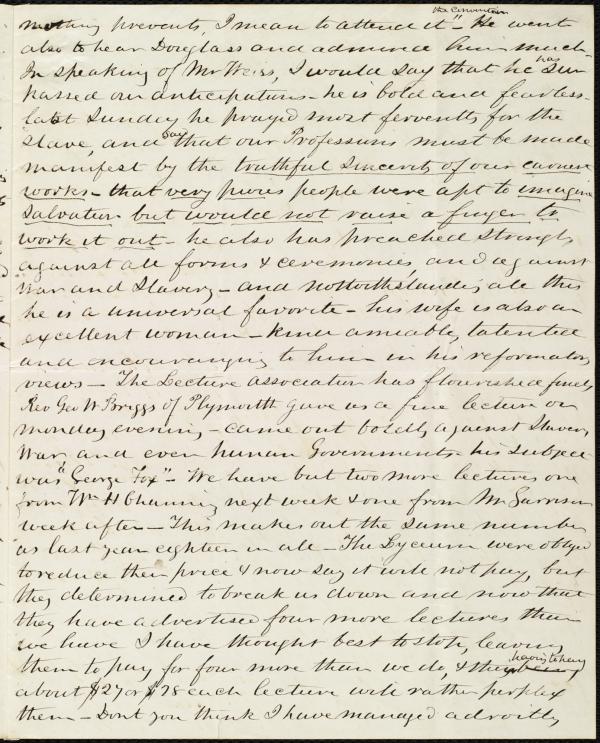 the convention
nothing prevents, I mean to attend it" - He went
also to hear Douglass and admired him much -
In speaking of Mr Weiss, I would say that he has sur
passed our anticipations - he is bold and fearless -
last Sunday he prayed most fervently for the
slave, and say that our Professions must be made
manifest by the truthful sincerity of our earnest
works - that very pious people were apt to imagine
Salvation but would not raise a finger to
work it out - he also has preached strongly
against all forms & ceremonies, and against
War and Slavery - and notwithstanding all this
he is a universal favorite - his wife is also an
excellent woman - kind amiable, talented
and encouraging to him in his reformatory
views - The Lecture association has flourished finely
Rev Geo W Briggs of Plymouth gave us a fine lecture on
monday evening - came out boldly against Slavery
War and even human Governments - his subject
was "George Fox" - We have but two more lectures one
from Wm H Channing next week & one from Mr Garrison
week after - This makes out the same number
as last year eighteen in all - The Lyceum were obliged
to reduce their price & now say it will not pay, but
they determined to break us down and now that
they have advertised four more lectures than
we have I have thought best to stop, leaving
them to pay for four more than we do, & they having to pay
about $27 or $28 each lecture will rather perplex
them - Dont you think I have managed adroitly